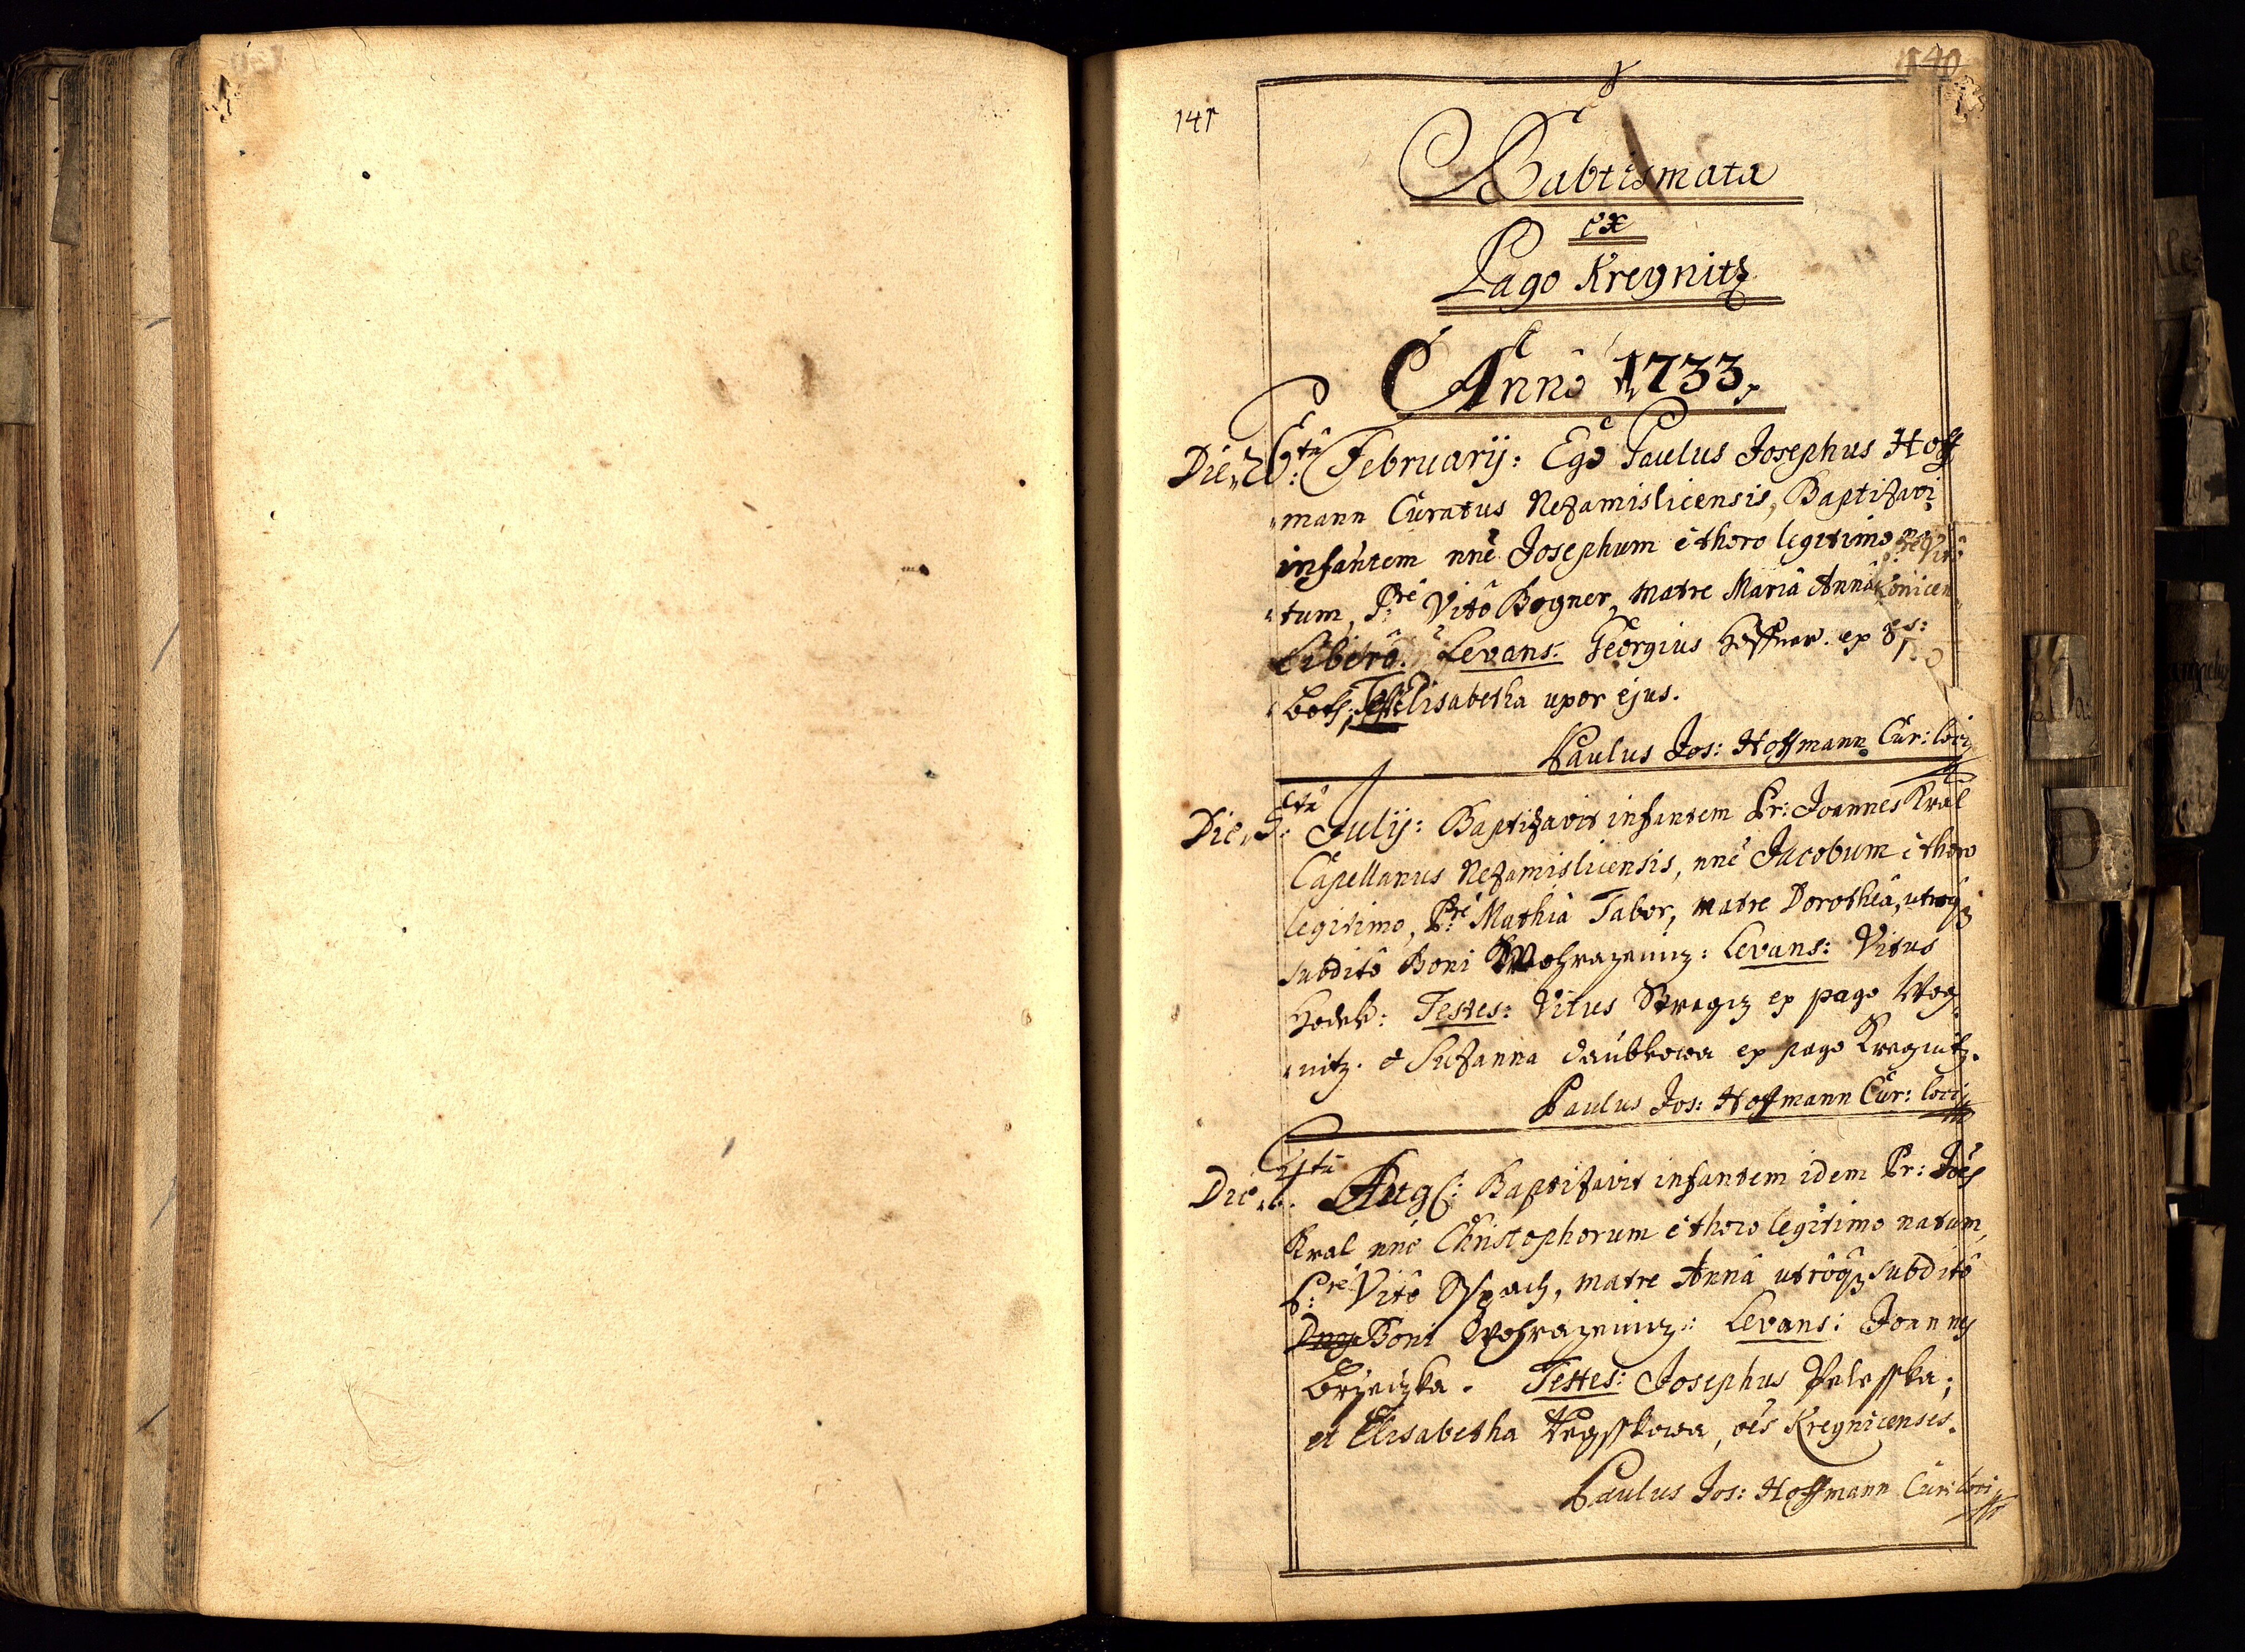 141
Babtismata
ex
Pago Kregnitz
Annô 1733.
Die 26:tâ February: Ego Paulus Josephus Hoff
mann Curatus Nezamislicensis, Baptizavi
infantem nnè Josephum è thoro legitimo
tum, P:rê Vitô Bogner, matre Mariâ Annâ
Liberô. Levans: Georgius Hoffner. ex
Elisabetha uxor ejus.
Paulus Jos: Hoffmann Cur: loci
Die 5:tâ July: Baptizavit infantem Pr: Joannes Kral
Capellanus Nezamislicensis, nnè Jacobum è thoro
legitimo, P:rê Mathiâ Tabor, matre Dorotheâ, utroqz
subditô Boni Wohrazeniz: Levans: Vitus
Hodek: Testes: Vitus ex pago Wog
nitz. et Suzanna Daubkowa ex pago Kregnitz.
Paulus Jos: Hoffmann Cur: loci
Die Aug: Baptizavit infantem idem Pr: Joês
Kral nnè Christophorum è thoro legitimo natum,
P:rê Vitô matre Annâ utrôqz subditô
Boni Wohrazeniz: Levans: Joannes
Brzeizka. Testes: Josephus Peleska;
et Elisabetha oês Kregnicenses.
Paulus Jos: Hoffmann Cur: loci